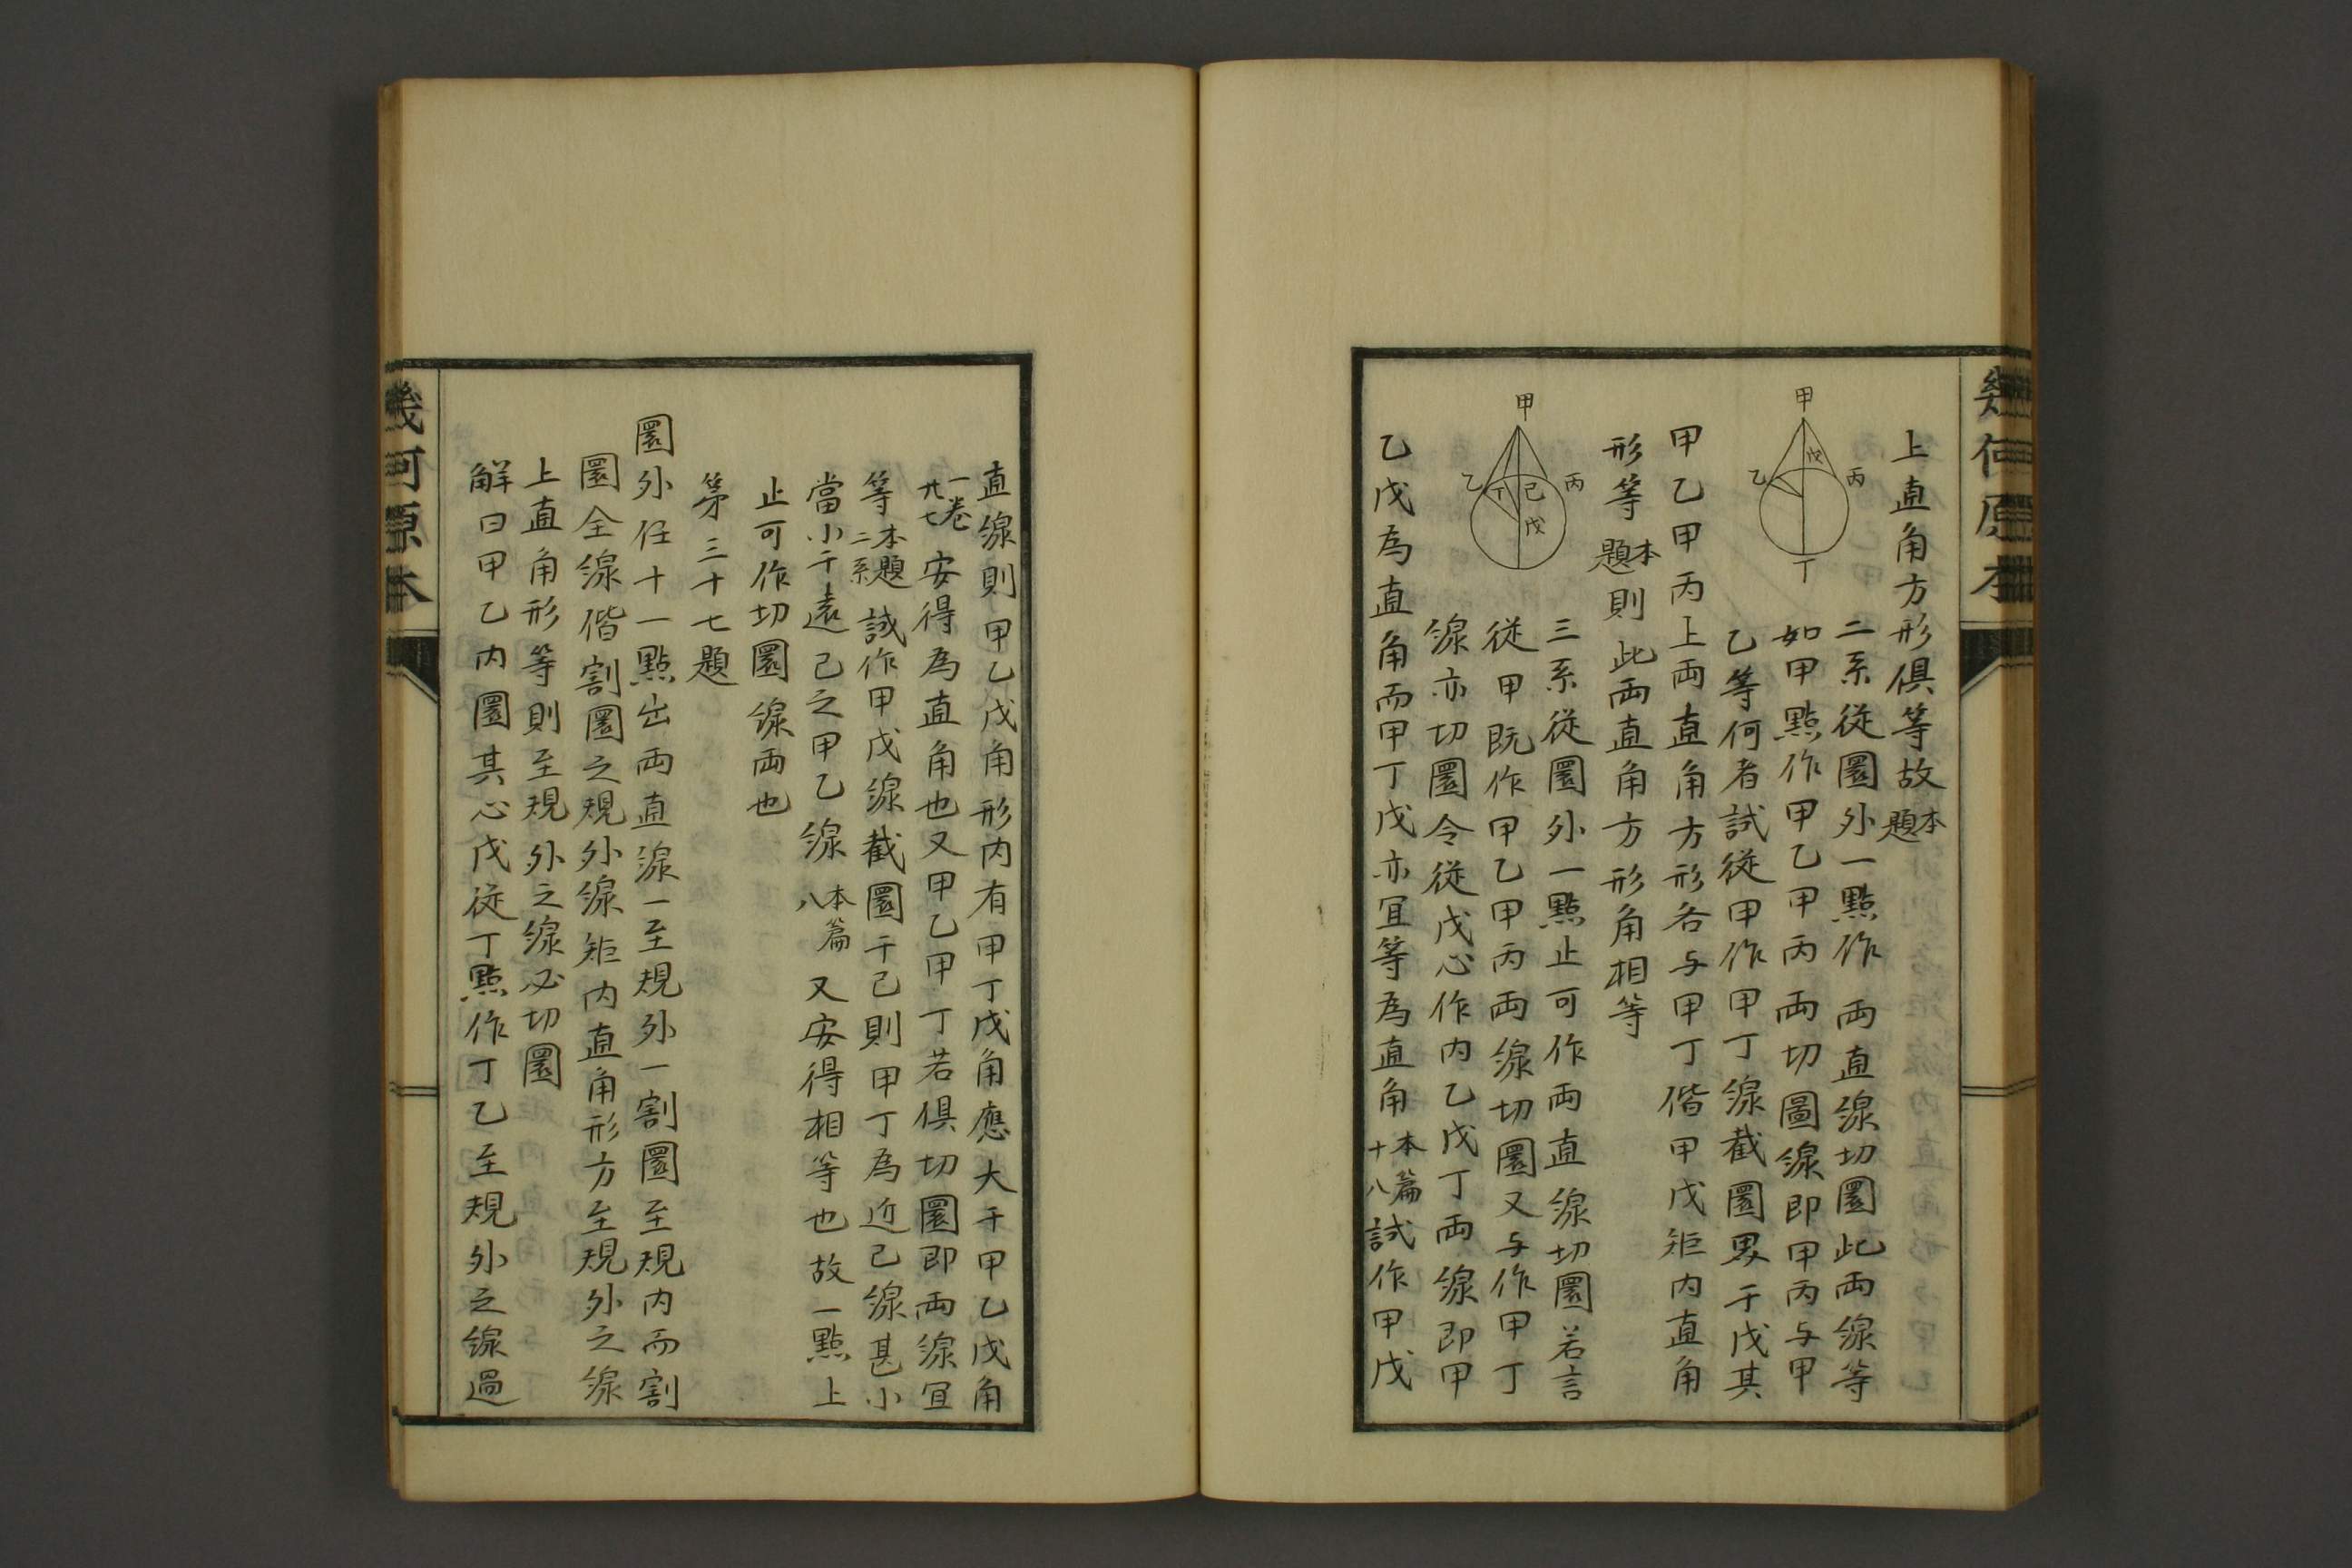 幾何原本
上直角方形俱等故本題
二系從圜外一點作兩直線切圜此兩線等
如甲點作甲乙甲丙兩切圖線即甲丙与甲
乙等何者試從甲作甲丁線截圜界于戊其
甲乙甲丙上兩直角方形各与甲丁偕甲戊矩内直角
形等本題則此兩直角方形角相等
三系從圜外一點止可作兩直線切圜若言
從甲既作甲乙甲丙兩線切圜又与作甲丁
線亦切圜令從戊心作内乙戊丁兩線即甲
乙戊為直角而甲丁戊亦宜等為直角本篇十八試作甲戊
甲
乙
丙
戊
丁
甲
乙
丙
丁
己
戊
直線則甲乙戊角形内有甲丁戊角應大于甲乙戊角
一卷廿七安得為直角也又甲乙甲丁若俱切圜即兩線宜
等本題二系誠作甲戊線截圜于己則甲丁為近己線甚小
當小于遠己之甲乙線本篇八又安得相等也故一點上
止可作切圜線兩也
第三十七題
圜外任十一點出兩直線一至規外一割圜至規内而割
圜全線偕割圜之規外線矩内直角形方至規外之線
上直角形等則至規外之線必切圜
解曰甲乙内圜其心戊從丁點作丁乙至規外之線過
幾何原本